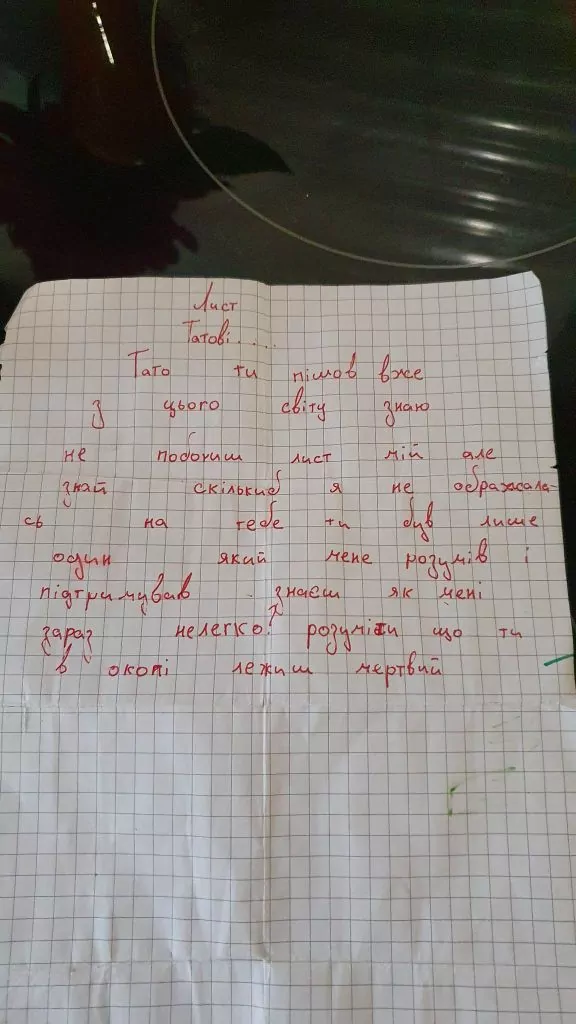 Лист
Татові....
Тато ти пішов вже
з цього світу знаю
не побочиш лист мій але
знай скількиб я не ображала-
сь на тебе ти був лише
один який мене розумів і
підтримував знаєш як мені
зараз нелегко! розуміти що ти
в окопі лежиш мертвий